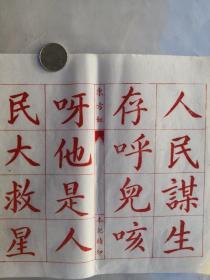 人民謀生
存呼兒咳
東方紅
呀他是人
民大救星